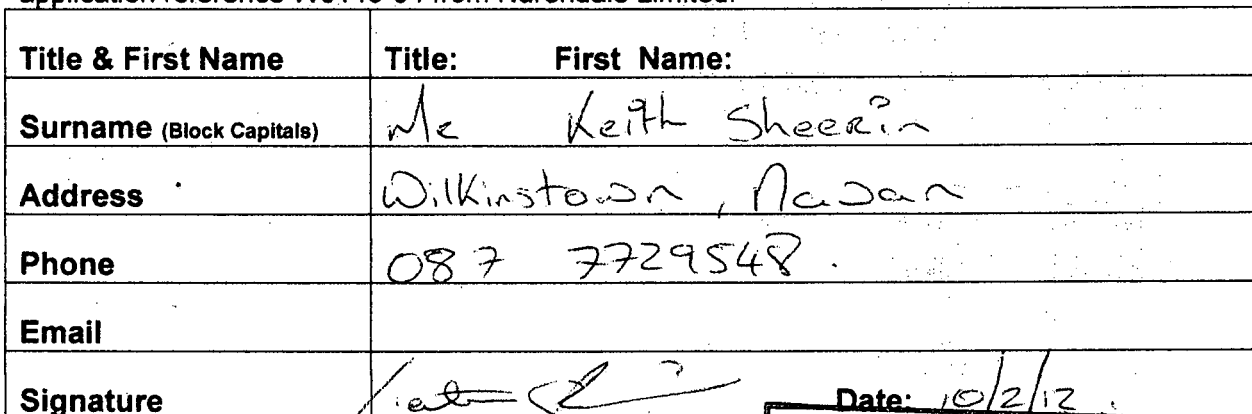 Title & First Name Title: First Name:
Surname (Block Capitals) Mr Keith Sheerin
Address Wilkinstown, Navan
Phone 087 7729548.
Email
Signature Date: 10/2/12.